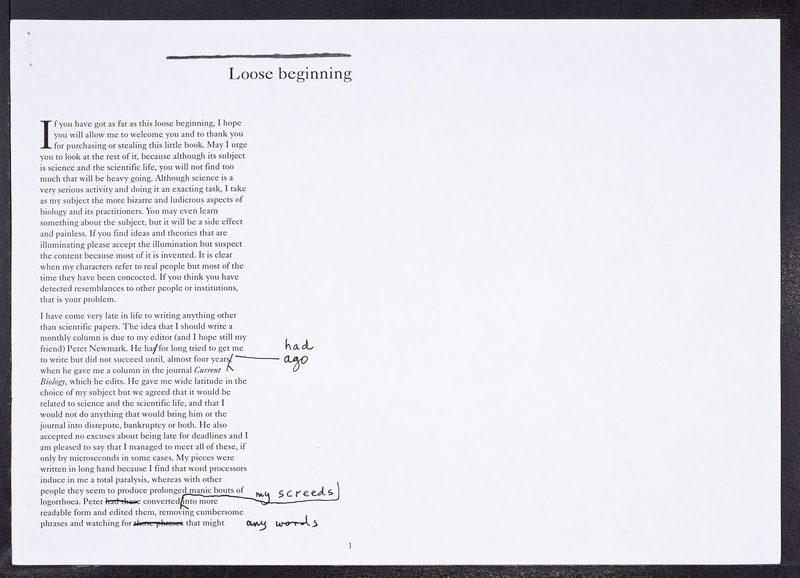 Loose beginning
If you have got as far as this loose beginning, I hope
you will allow me to welcome you and to thank you
for purchasing or stealing this little book. May I urge
you to look at the rest of it, because although its subject
is science and the scientific life, you will not find too
much that will be heavy going. Although science is a
very serious activity and doing it an exacting task, I take
as my subject the more bizarre and ludicrous aspects of
biology and its practitioners. You may even learn
something about the subject, but it will be a side effect
and painless. If you find ideas and theories that are
illuminating please accept the illumination but suspect
the content because most of it is invented. It is clear
when my characters refer to real people but most of the
time they have been concocted. If you think you have
detected resemblances to other people or institutions,
that is your problem.
I have come very late in life to writing anything other
than scientific papers. The idea that I should write a
monthly column is due to my editor (and I hope still my
friend) Peter Newmark. He has for long tried to get me
had
to write but did not succeed until, almost four years
ago
when he gave me a column in the journal Current
Biology, which he edits. He gave me wide latitude in the
choice of my subject but we agreed that it would be
related to science and the scientific life, and that I
would not do anything that would bring him or the
journal into disrepute, bankruptcy or both. He also
accepted no excuses about being late for deadlines and I
am pleased to say that I managed to meet all of these, if
only by microseconds in some cases. My pieces were
written in long hand because I find that word processors
induce in me a total paralysis, whereas with other
people they seem to produce prolonged manic bouts of
my screeds
logorrhoea. Peter had these converted into more
readable form and edited them, removing cumbersome
phrases and watching for those phrases that might
any words
1